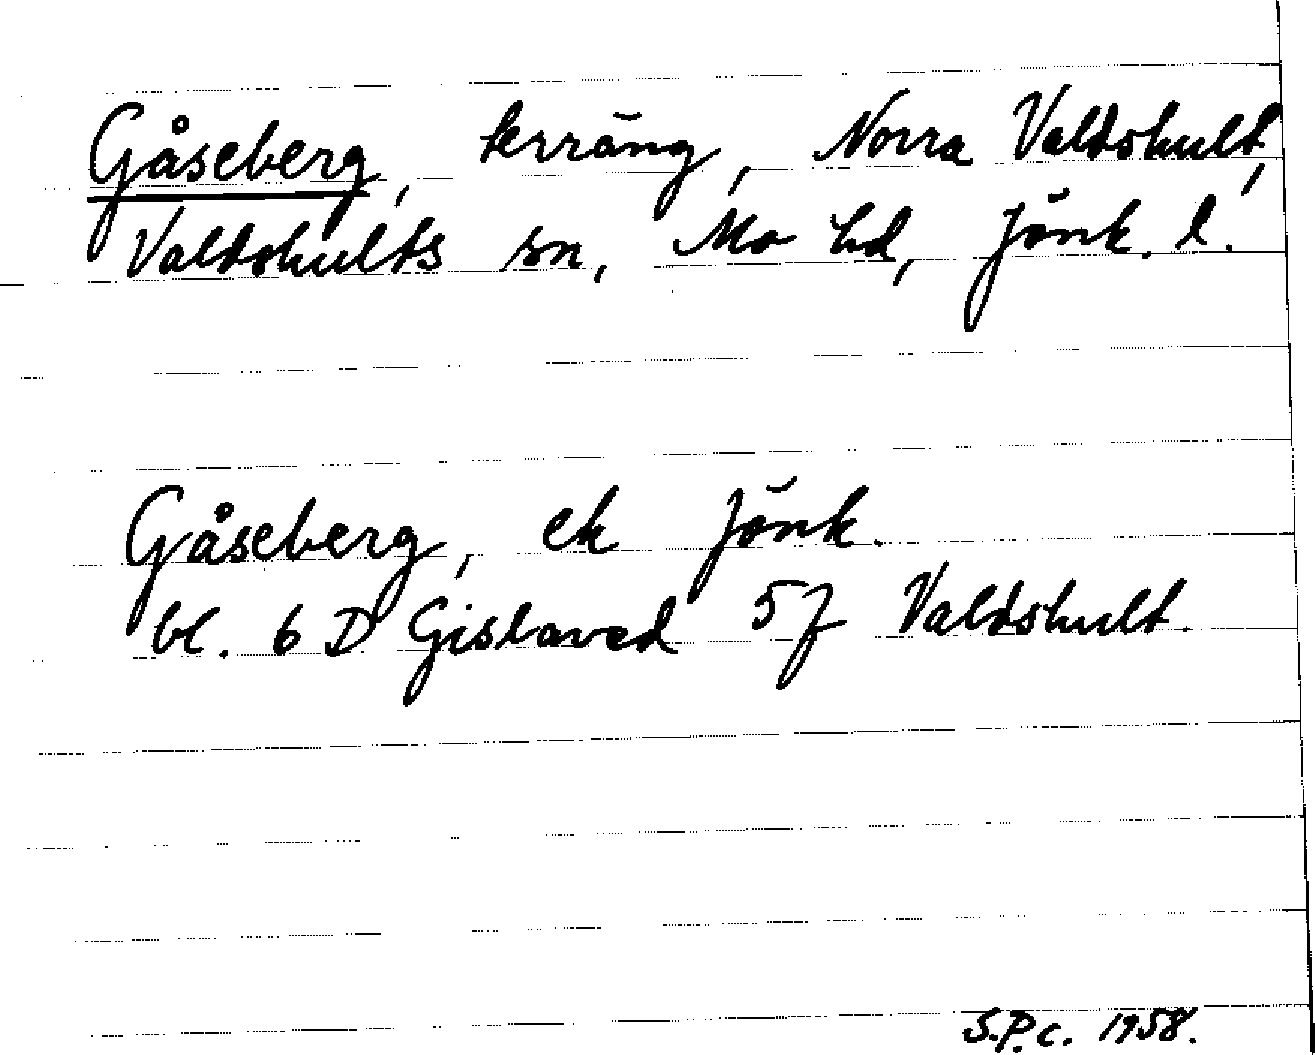 Gåseberg, terräng, Norra Valdshult,
Valdshults sn, Mo hd, Jönk. l.
Gåseberg, ek Jönk.
bl. 6 D Gislaved 5j Valdshult.
S.P.c. 1958.